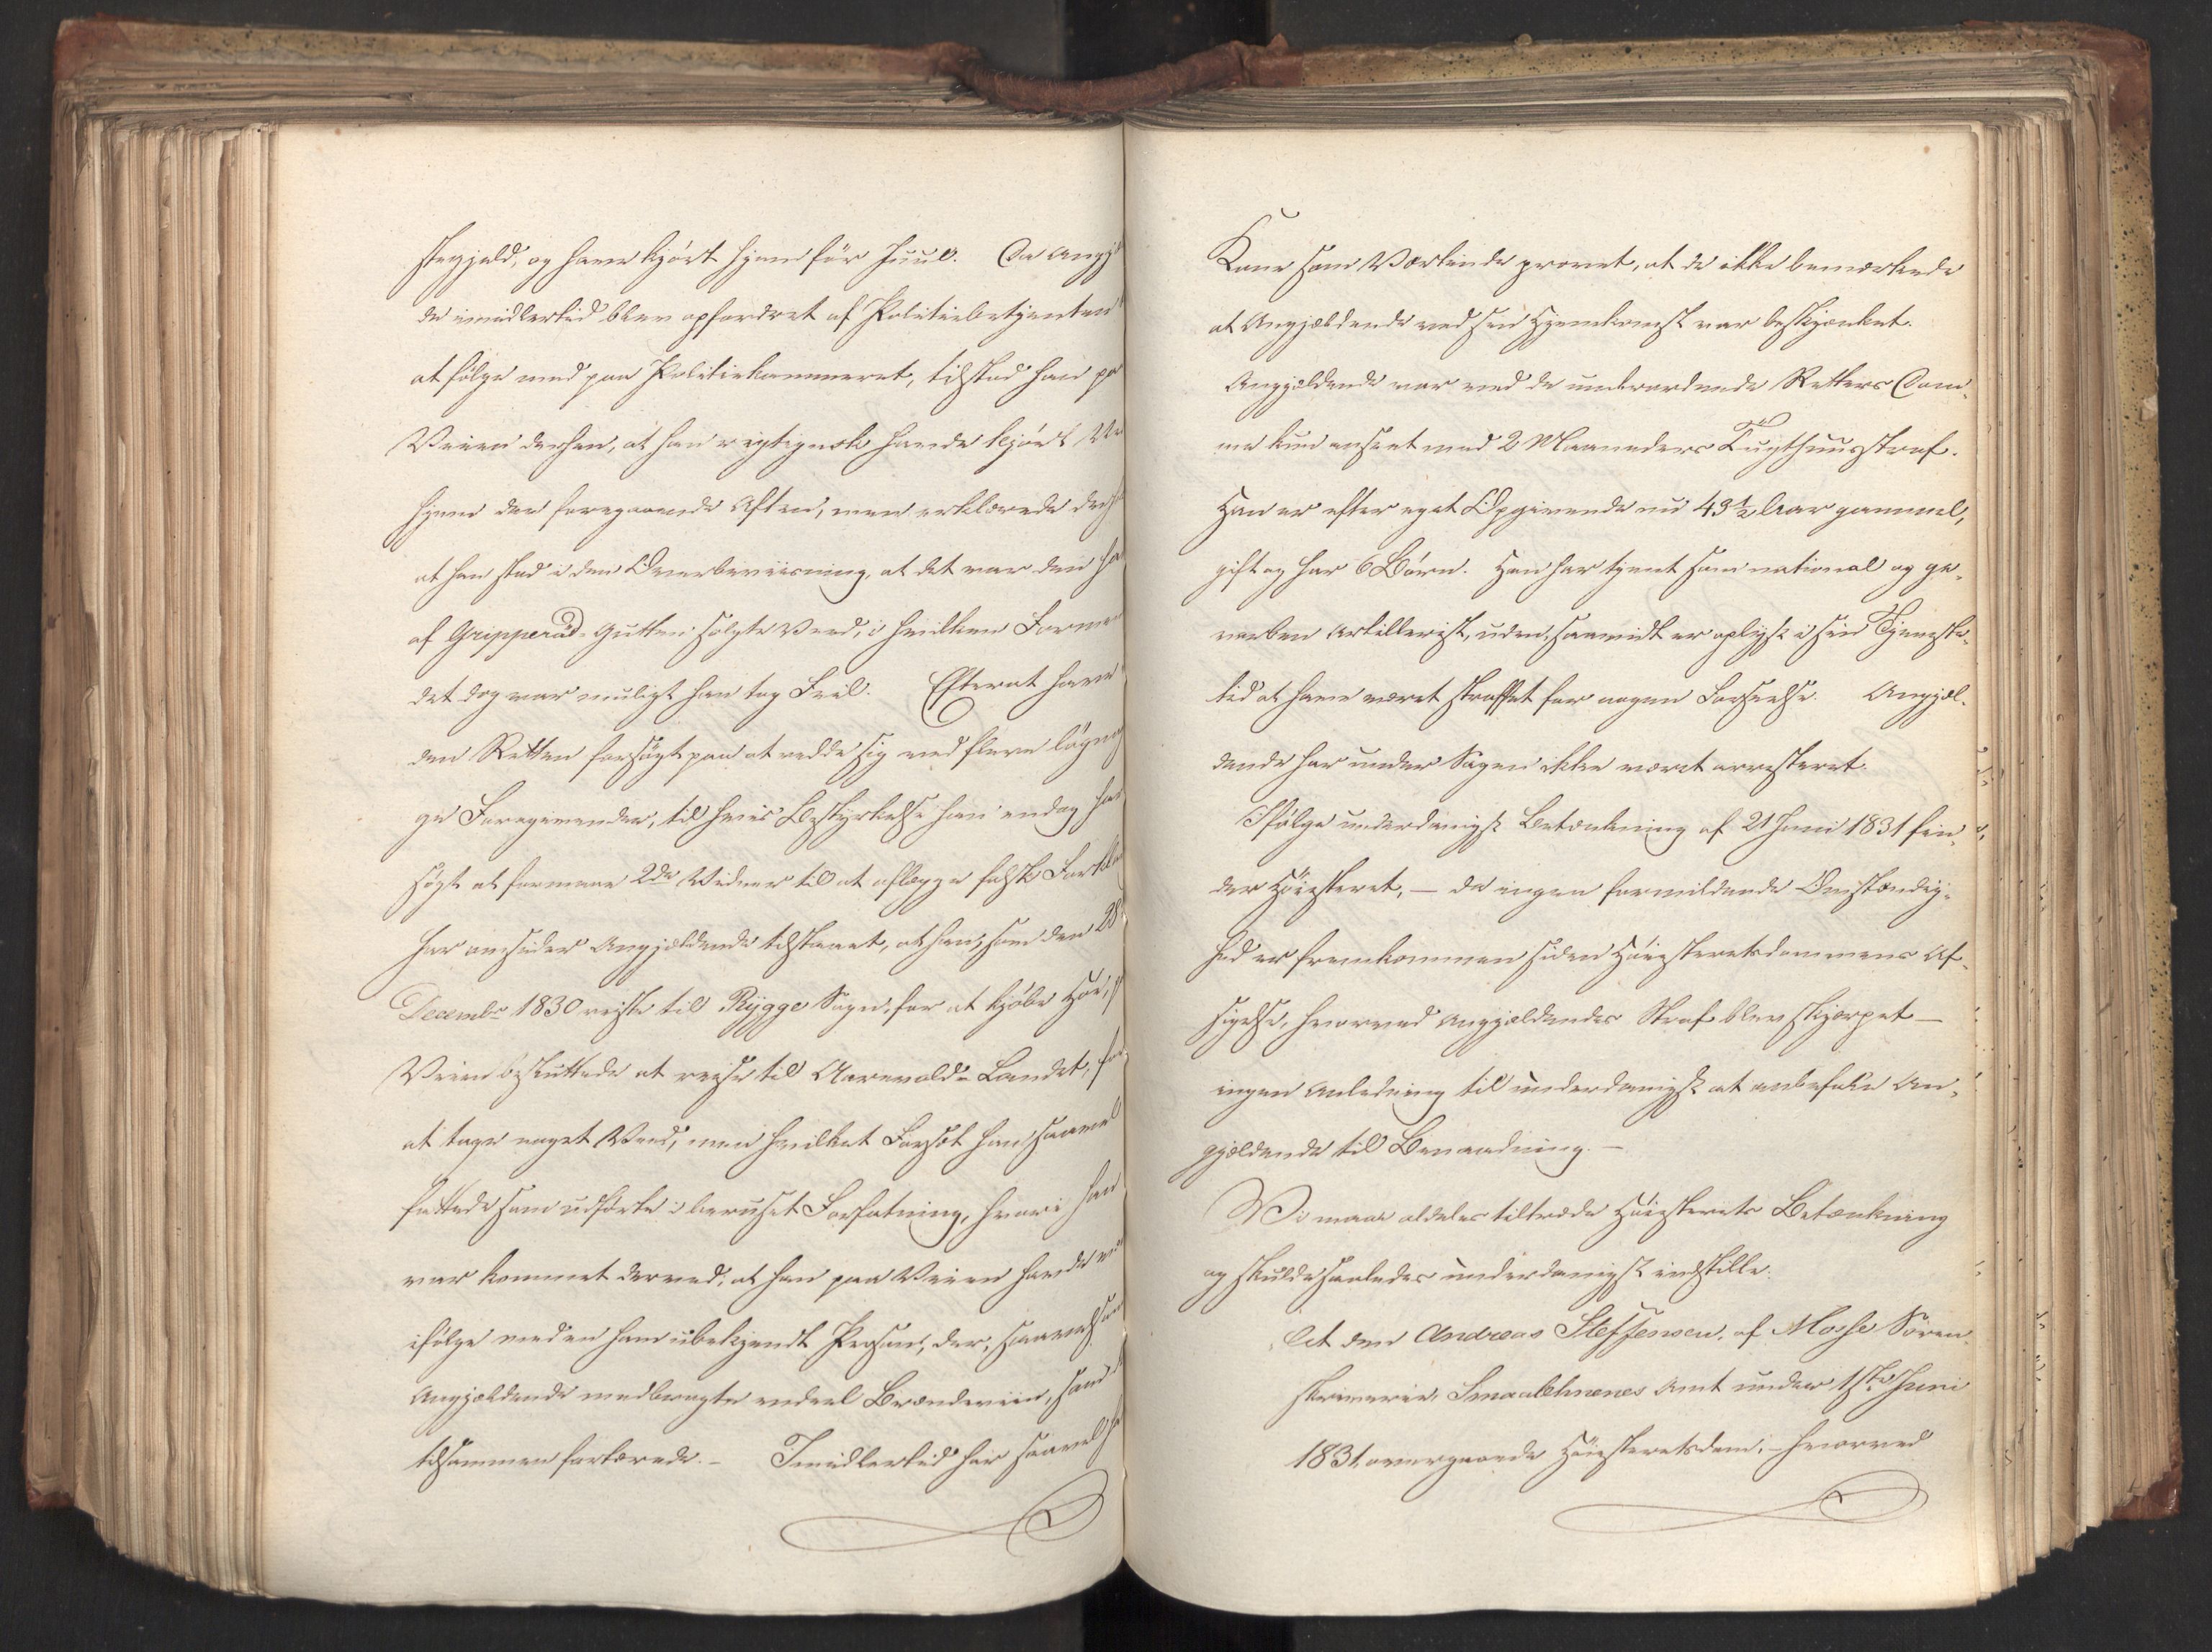 stegjeld, og have kjørt hjem før Juul. Da Angj
de imidlertid blev opfordret af Politiebetjenten
at følge med paa Politiekammeret, tilstod han pa
Veien derhen, at han rigtignok havde kjørt Ve
hjem den foregaaende Aften, men erklærede derh
at han stod i den Overbeviisning, at det var den ha
af Gripperød-Gutten solgte Veed, i hvilken Forme
det dog var muligt han tog Feil. Efterat have
den Retten forsøgt paa at redde sig ved flere løgnag
ge Foregivender, til hvis Bestyrkelse han endog har
søgt at formaae 2de Vidner til at aflægge falsk Forkla
har omsider Angjældende tilstaaet, at han, som den 28
Decembr 1830 reiste til Rygge Sogn, for at kjøbe Høe, p
Veien besluttede at reise til Aarevold-Landet, for
at tage noget Veed, men hvilket Forsæt han saavel
fattede som udførte i beruset Forfatning, hvori han
var kommet derved, at han paa Veien havde væ
ifølge med en ham ubekjendt Person, der, saavelsom
Angjældende medbragte endeel Brændeviin, som d
tilsammen fortærede. - Imidlertid har saavel h
Kone som Værtinde provet, at de ikke bemærkede
at Angjældende ved sin Hjemkomst var beskjænket.
Angjældende var ved de underordnede Retters Dom-
me kun anseet med 2 Maaneders Tugthuusstraf.
Han er efter eget Opgivende nu 43½ Aar gammel,
gift og har 6 Børn. Han har tjent som national og ge-
vorben Artillerist, uden, saavidt er oplyst i sin Tjeneste-
tid at have været straffet for nogen Forseelse. Angjæl-
dende har under Sagen ikke været arresteret.
Ifølge underdanigst Betænkning af 21 Juni 1831 fin-
der Høiesteret, - da ingen formildende Omstændig-
hed er fremkommen siden Høiesteretsdommens Af-
sigelse, hvorved Angjældendes Straf blev skjærpet -
ingen Anledning til underdanigst at anbefale An-
gjældende til Benaadning. -
Vi maae aldeles tiltræde Høiesterets Betænkning
og skulde saaledes underdanigst indstille:
At den Andreas Steffensen, af Mosse Soren-
skriverie, Smaalehnenes Amt under 1ste Juni
1831 overgaaede Høiesteretsdom, - hvorved